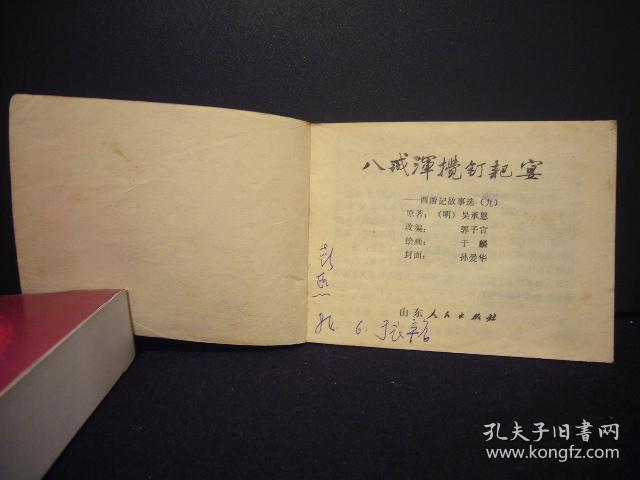 八戒浑搅钉耙宴
——西游记故事选（九）
原著：（明）吴承恩
改编：郭子宣
绘画：于麟
封面：孙爱华
山东人民出版社
6.
孔夫子旧书网
www.kongfz.com